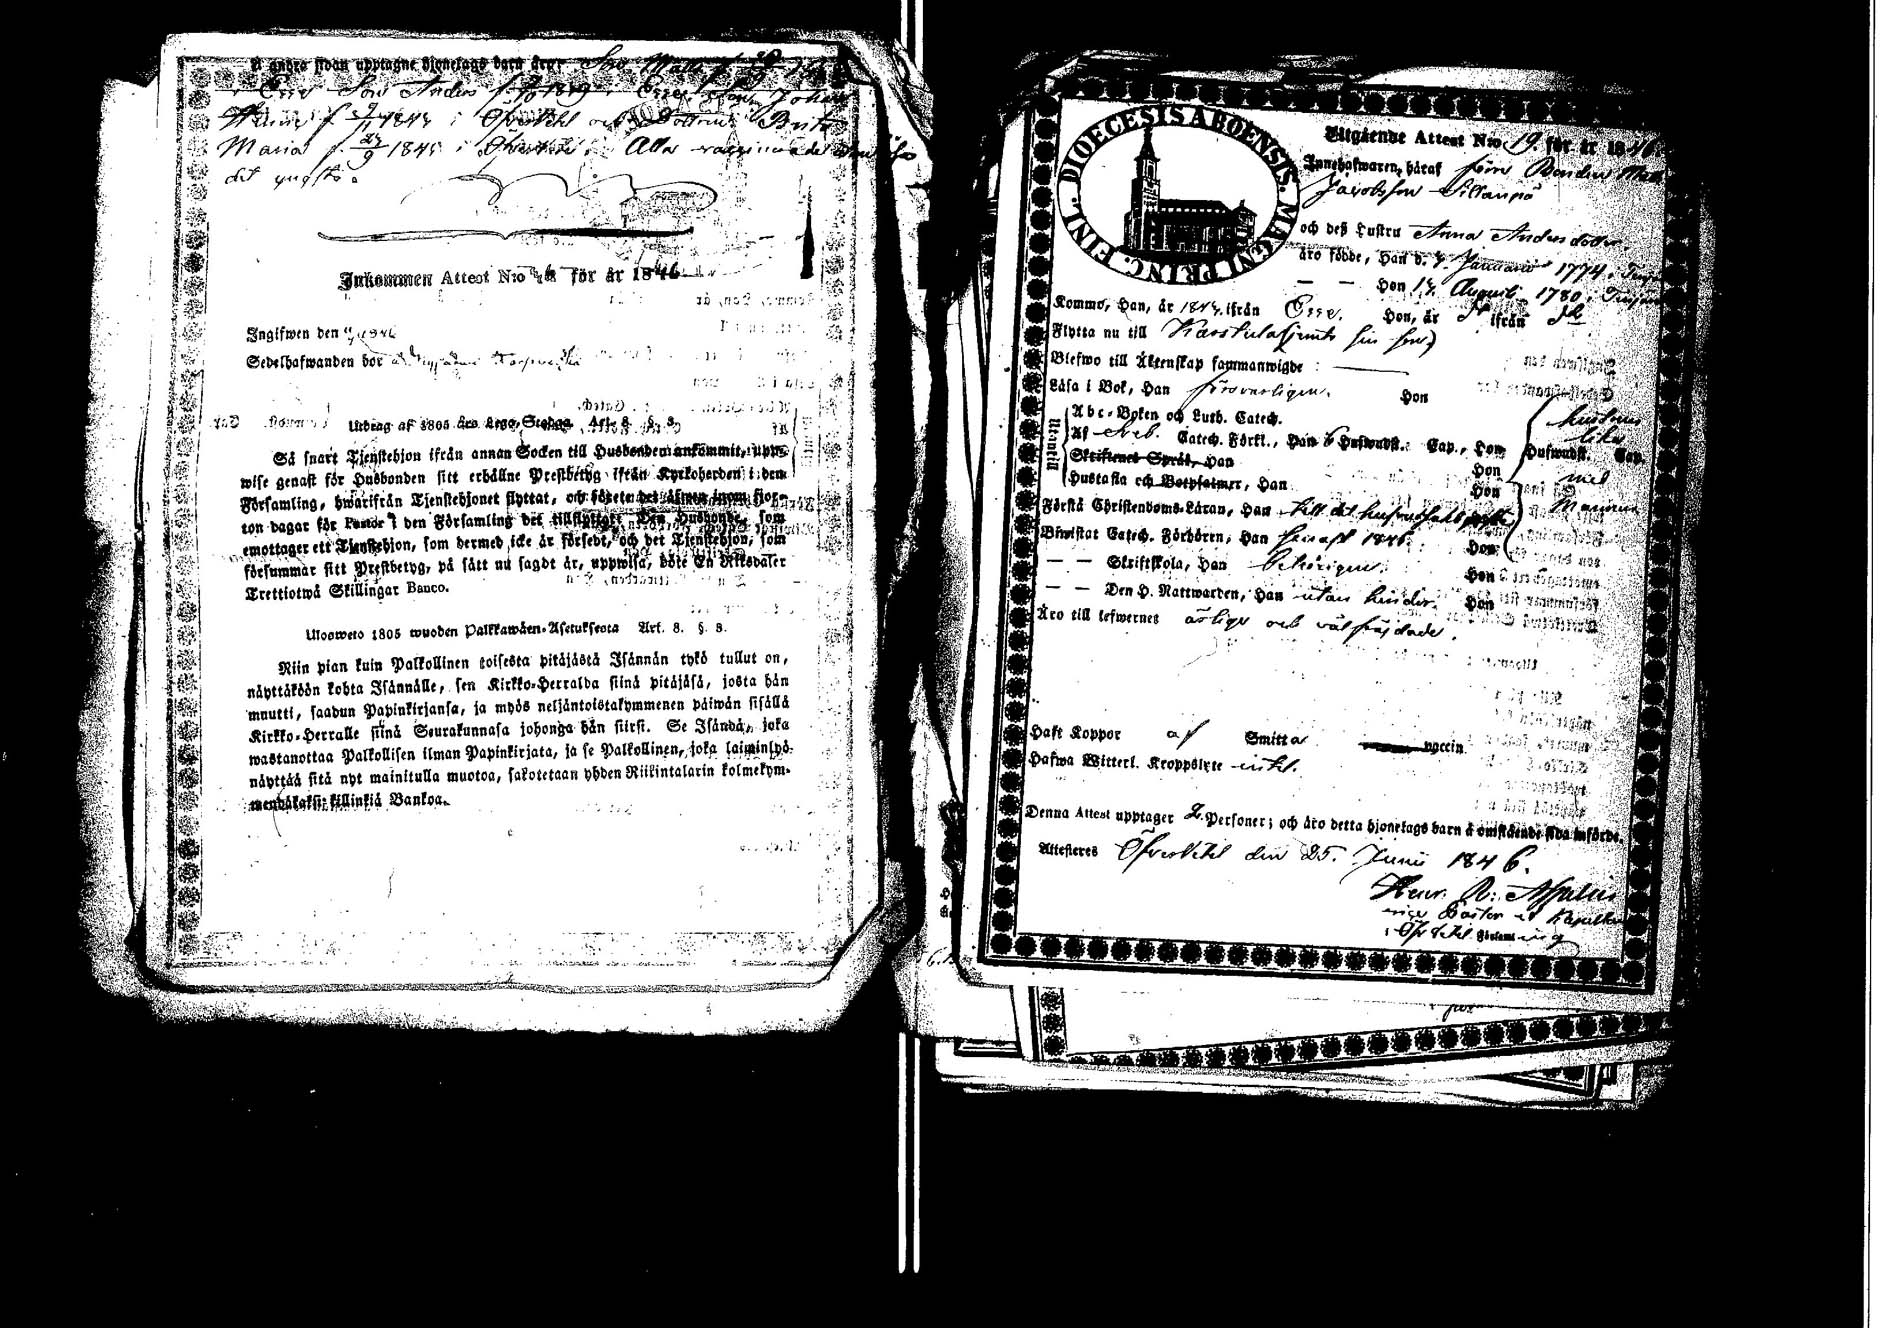 å andra sidan upptagne hjonelags barn äro: Son
Esse Son Anders 1839 i Esse Son Johan
1844 i Öfvetihl och Dottren Brita
Maria f. 1845 i Alla vaccinerade
det yngsta.
Inkommen Attest N:o för år 1846
Ingifwen den
Sedelhafwanden bor
Utdrag af 1805 års Lego-Stadga. Art. 8. §. 8.
Så snart Tjenstehjon ifrån annan Socken till Husbonden ankommit, upp-
wise genast för Husbonden sitt erhållne Prestbetyg ifrån Kyrkoherden i den
Församling, hwarifrån Tjenstehjonet flyttat, och förete det äfwen inom fjor-
ton dagar för Pastor i den Församling det tillflyttat. Den Husbonde, som
emottager ett Tjenstehjon, som dermed icke är försedt, och det Tjenstehjon, som
försummar sitt Prestbetyg, på sätt nu sagdt är, uppwisa, böte En Riksdaler
Trettiotwå Skillingar Banco.
Ulosweto 1805 wuoden Palkkawäen-Asetuksesta Art. 8. §. 8.
Niin pian kuin Palkollinen toisesta pitäjästä Isännän tykö tullut on,
näyttäköön kohta Isännälle, sen Kirkko-Herralda siinä pitäjäsä, josta hän
muutti, saadun Papinkirjansa, ja myös neljäntoistakymmenen päiwän sisällä
Kirkko-Herralle siinä Seurakunnasa johonga hän siirsi. Se Isändä, joka
wastanottaa Palkollisen ilman Papinkirjata, ja se Palkollinen, joka laiminlyö
näyttää sitä nyt mainitulla muotoa, sakotetaan yhden Riikintalarin kolmekym-
mendäkaksi killinkiä Bankoa.
DIOECESIS ABOENSIS. MAGNI PRINC. FINL.
Utgående Attest N:o 19 för år 1846.
Innehafwaren häraf förra Bonden Matts
Jacobsson Sillanpä
och deß Hustru Anna Andersdotter.
äro födde, Han d. 4 Januarii 1774.
— — Hon 14 Augusti 1780.
Kommo, Han, år 1844 ifrån Esse. Hon, år ifrån
Flytta nu till Karstula (jemte sin son)
Blefwo till Äktenskap sammanwigde:
Läsa i Bok, Han försvarligen. Hon
Utantill
Abc-Boken och Luth. Catech.
Af Sveb. Catech. Förkl., Han 6 Hufwudst. Cap., Hon Hufwudst. Cap.
Skriftenes Språk, Han Hon
Hustafla och Botpsalmer, Han Hon
hustrun
lika
med
Mannen
Förstå Christendoms-Läran, Han till det hufvudsakligaste
Biwistat Catech. Förhören, Han senast 1846. Hon
— — Skriftskola, Han behörigen. Hon
— — Den H. Nattwarden, Han utan hinder. Hon
Äro till lefwernet ärlige och välfrejdade.
Haft Koppor af Smitta vaccin
Hafwa Witterl. Kroppslyte intet.
Denna Attest upptager 2 Personer; och äro detta hjonelags barn å omstående sida införde.
Attesteres Öfvetihl den 25. Junii 1846.
Henr. R:
Pastor
i Församling